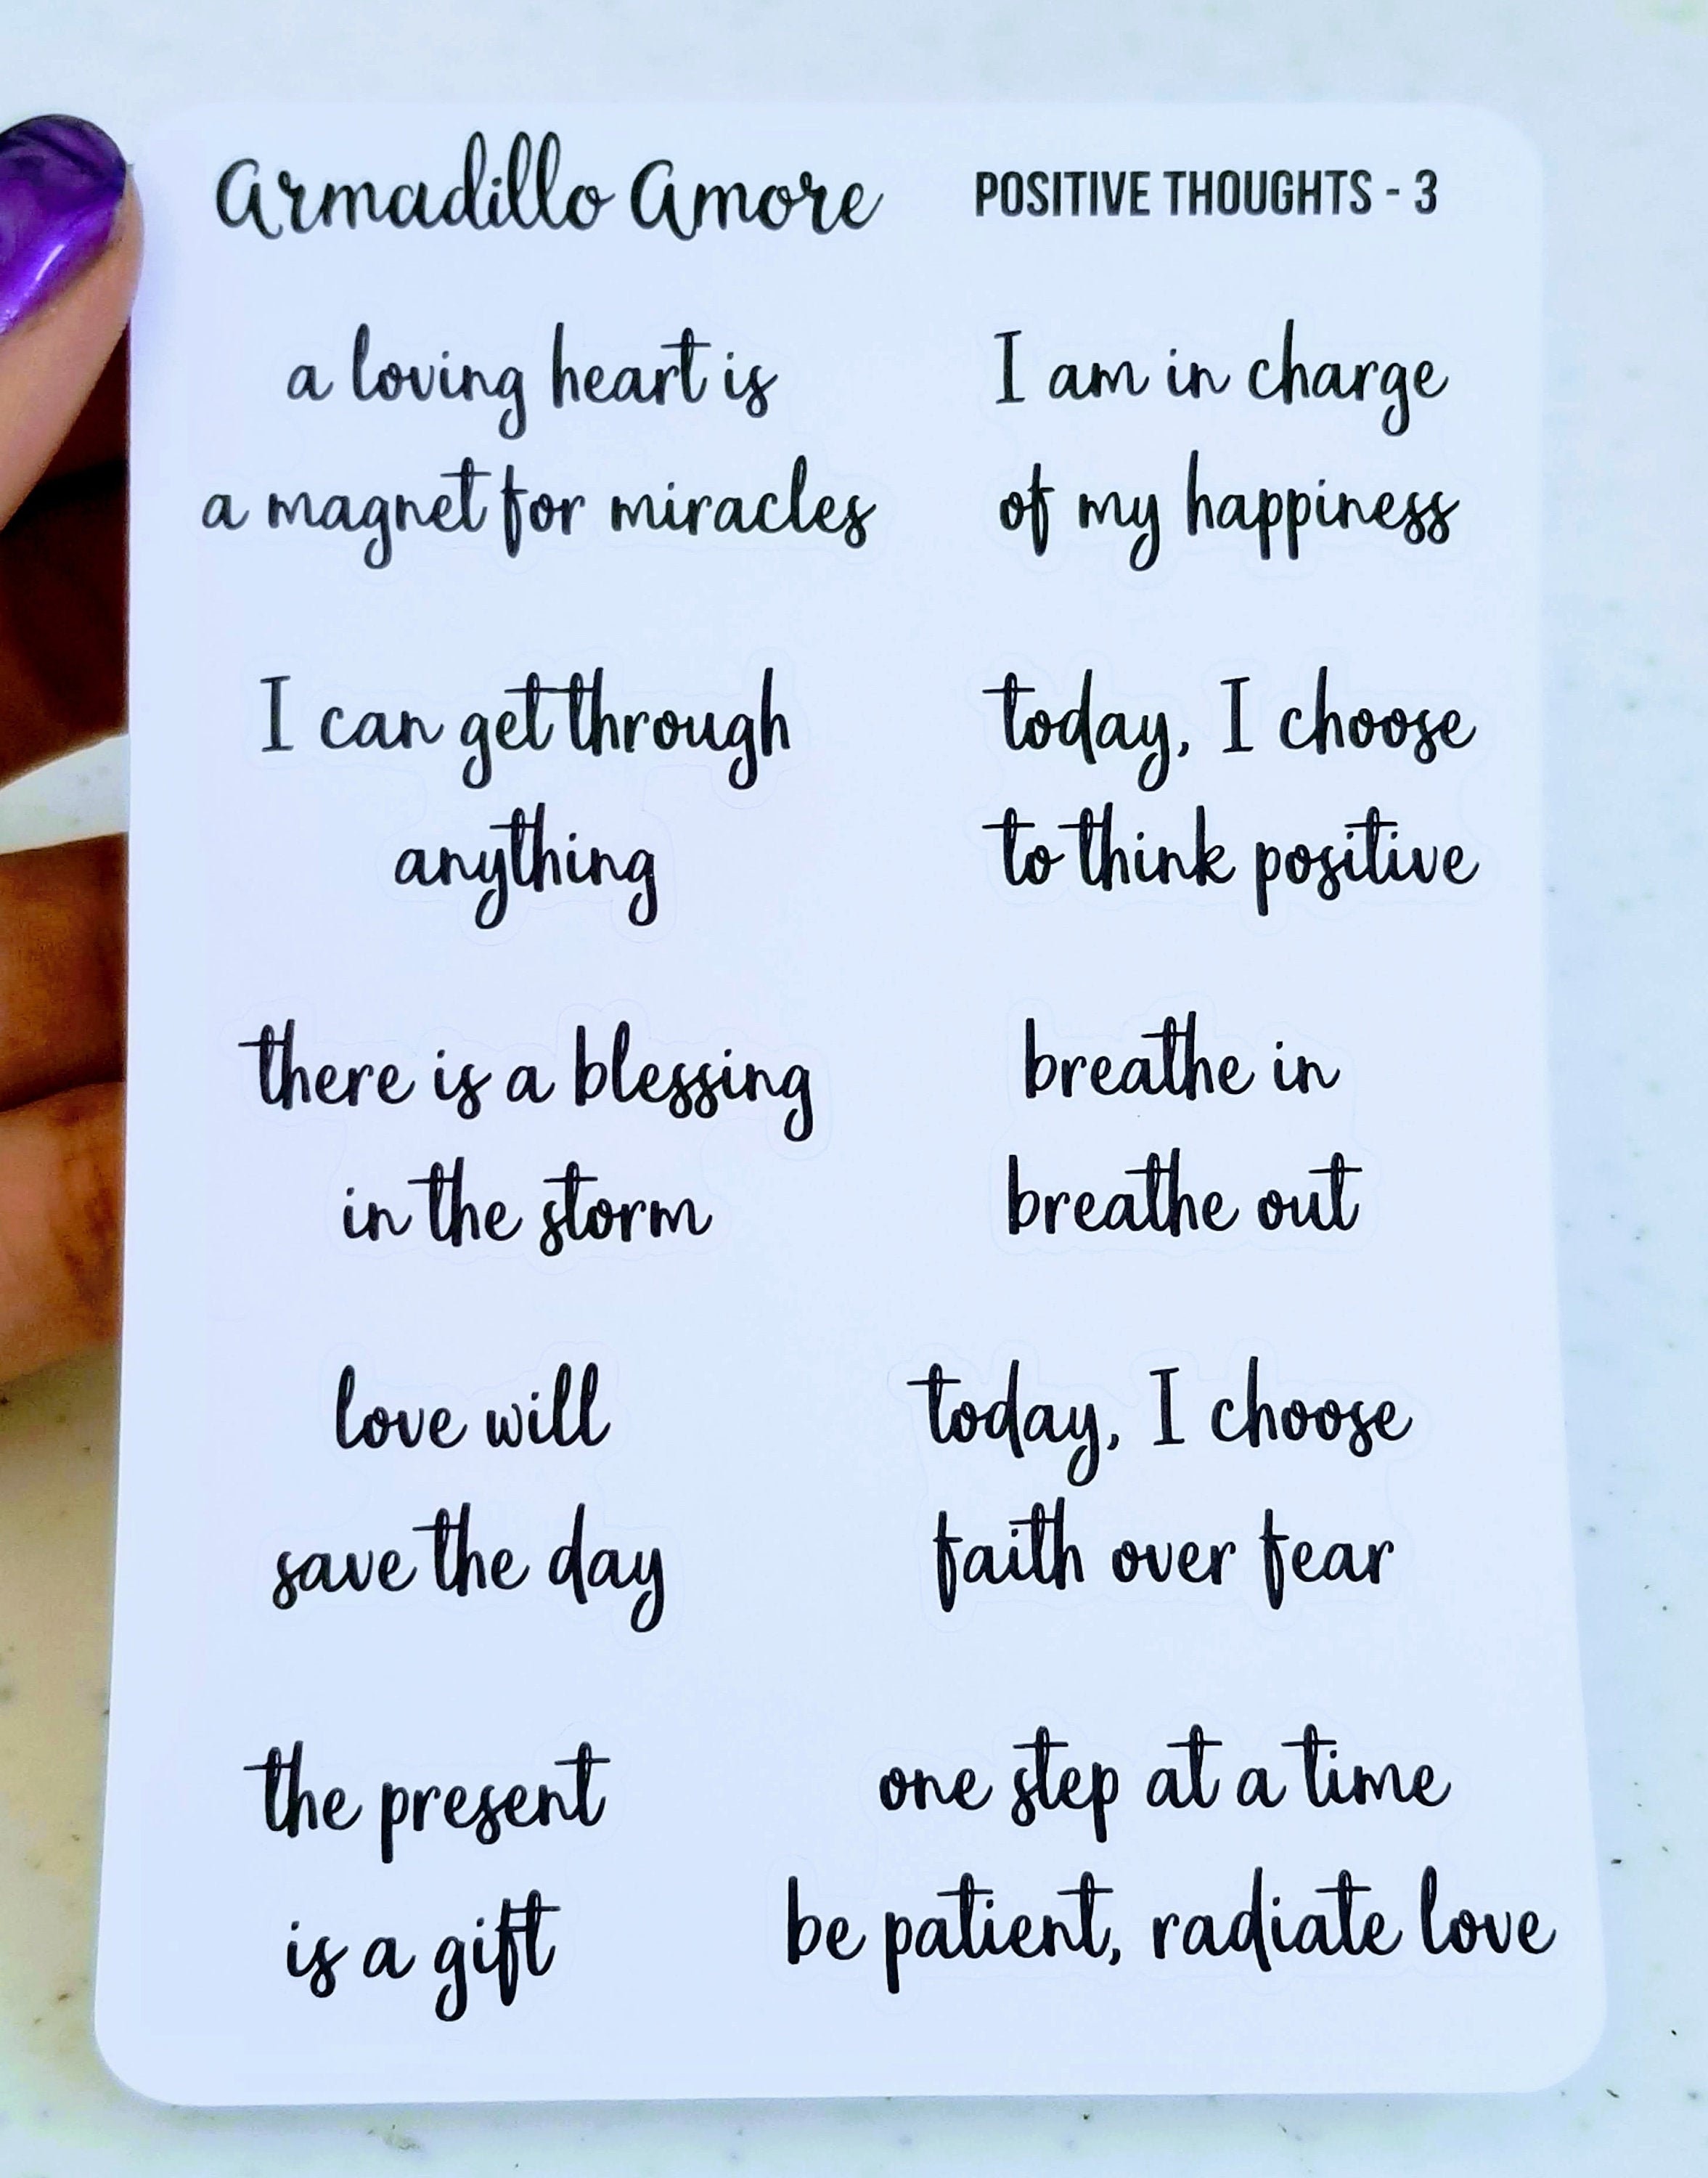 Armadillo Amore
POSITIVE THOUGHTS - 3
a loving heart is
a magnet for miracles
I am in charge
of my happiness
I can get through
anything
today, I choose
to think positive
there is a blessing
in the storm
breathe in
breathe out
love will
save the day
today, I choose
faith over fear
the present
is a gift
one step at a time
be patient, radiate love